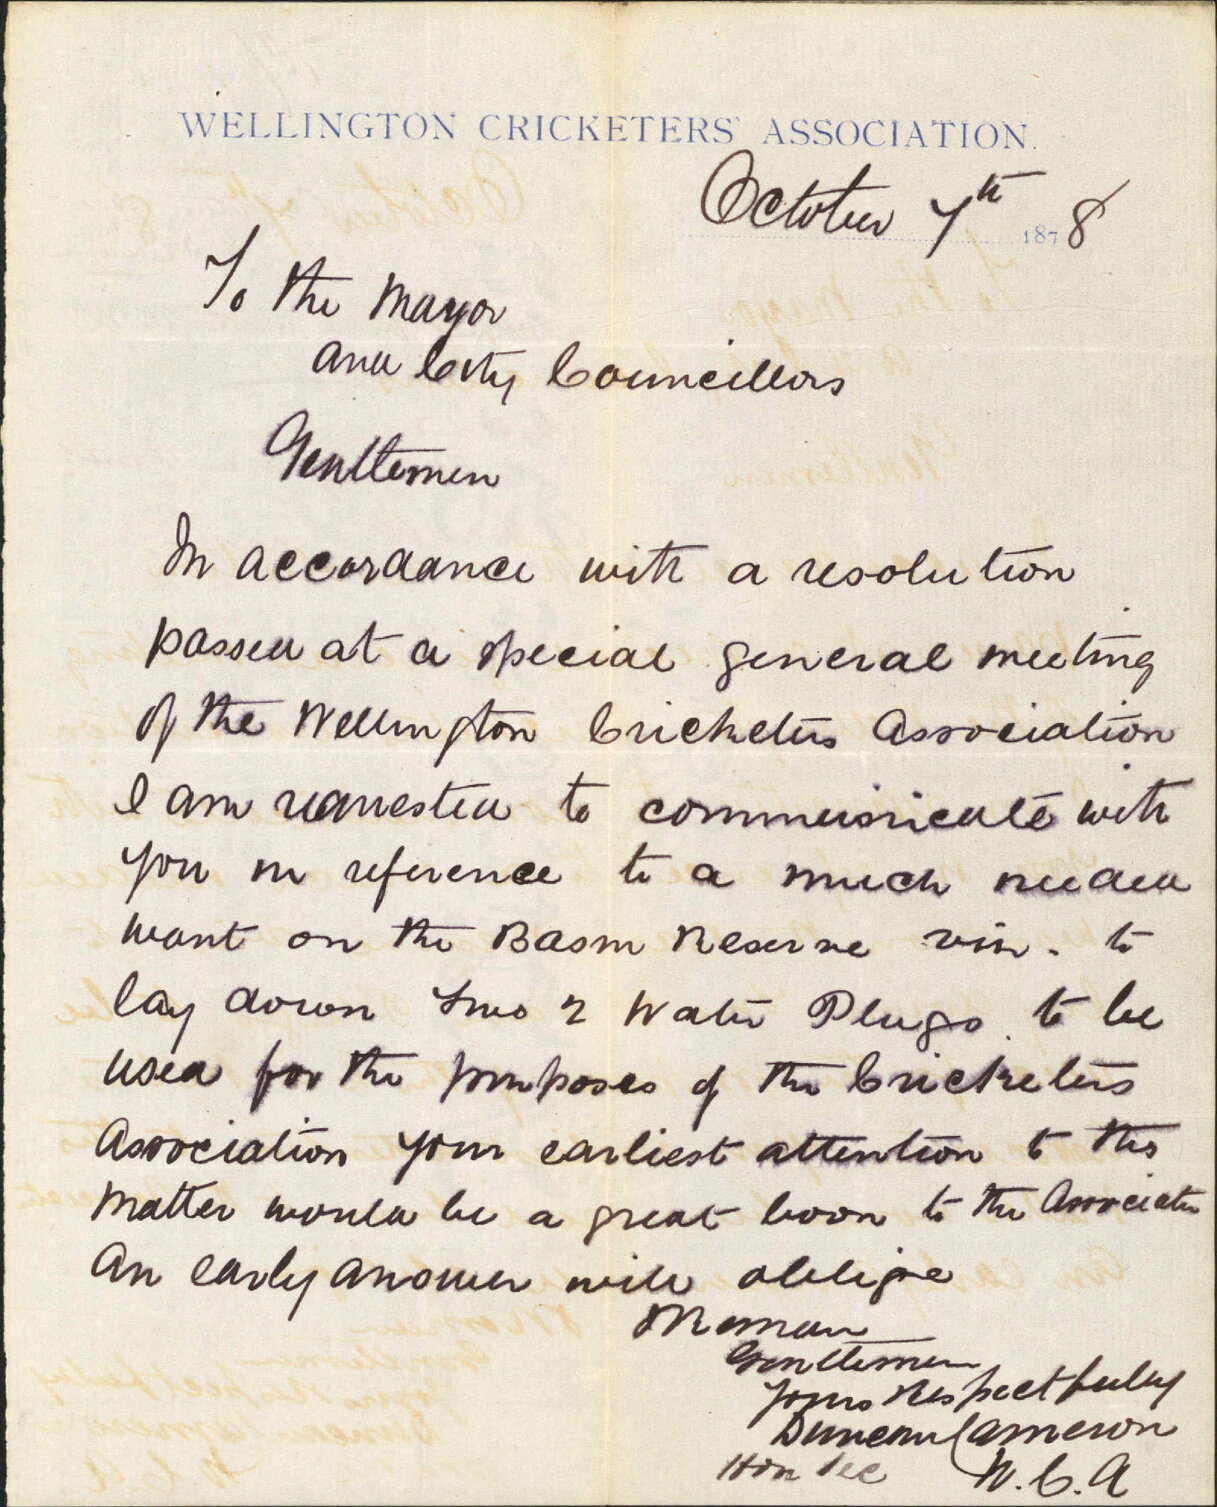 WELLINGTON CRICKETERS' ASSOCIATION.
October 7th 1878
To the Mayor
and City Councillors
Gentlemen
In accordance with a resolution
passed at a special general meeting
of the Wellington Cricketers Association
I am requested to communicate with
you in reference to a much needed
want on the Basin Reserve viz. to
lay down two 2 Water Plugs to be
used for the purposes of the Cricketers
Association Your earliest attention to this
matter would be a great boon to the Association
An early answer will oblige
I Remain
Gentlemen
Yours Respectfully
Duncan Cameron
Hon Sec W.C.A